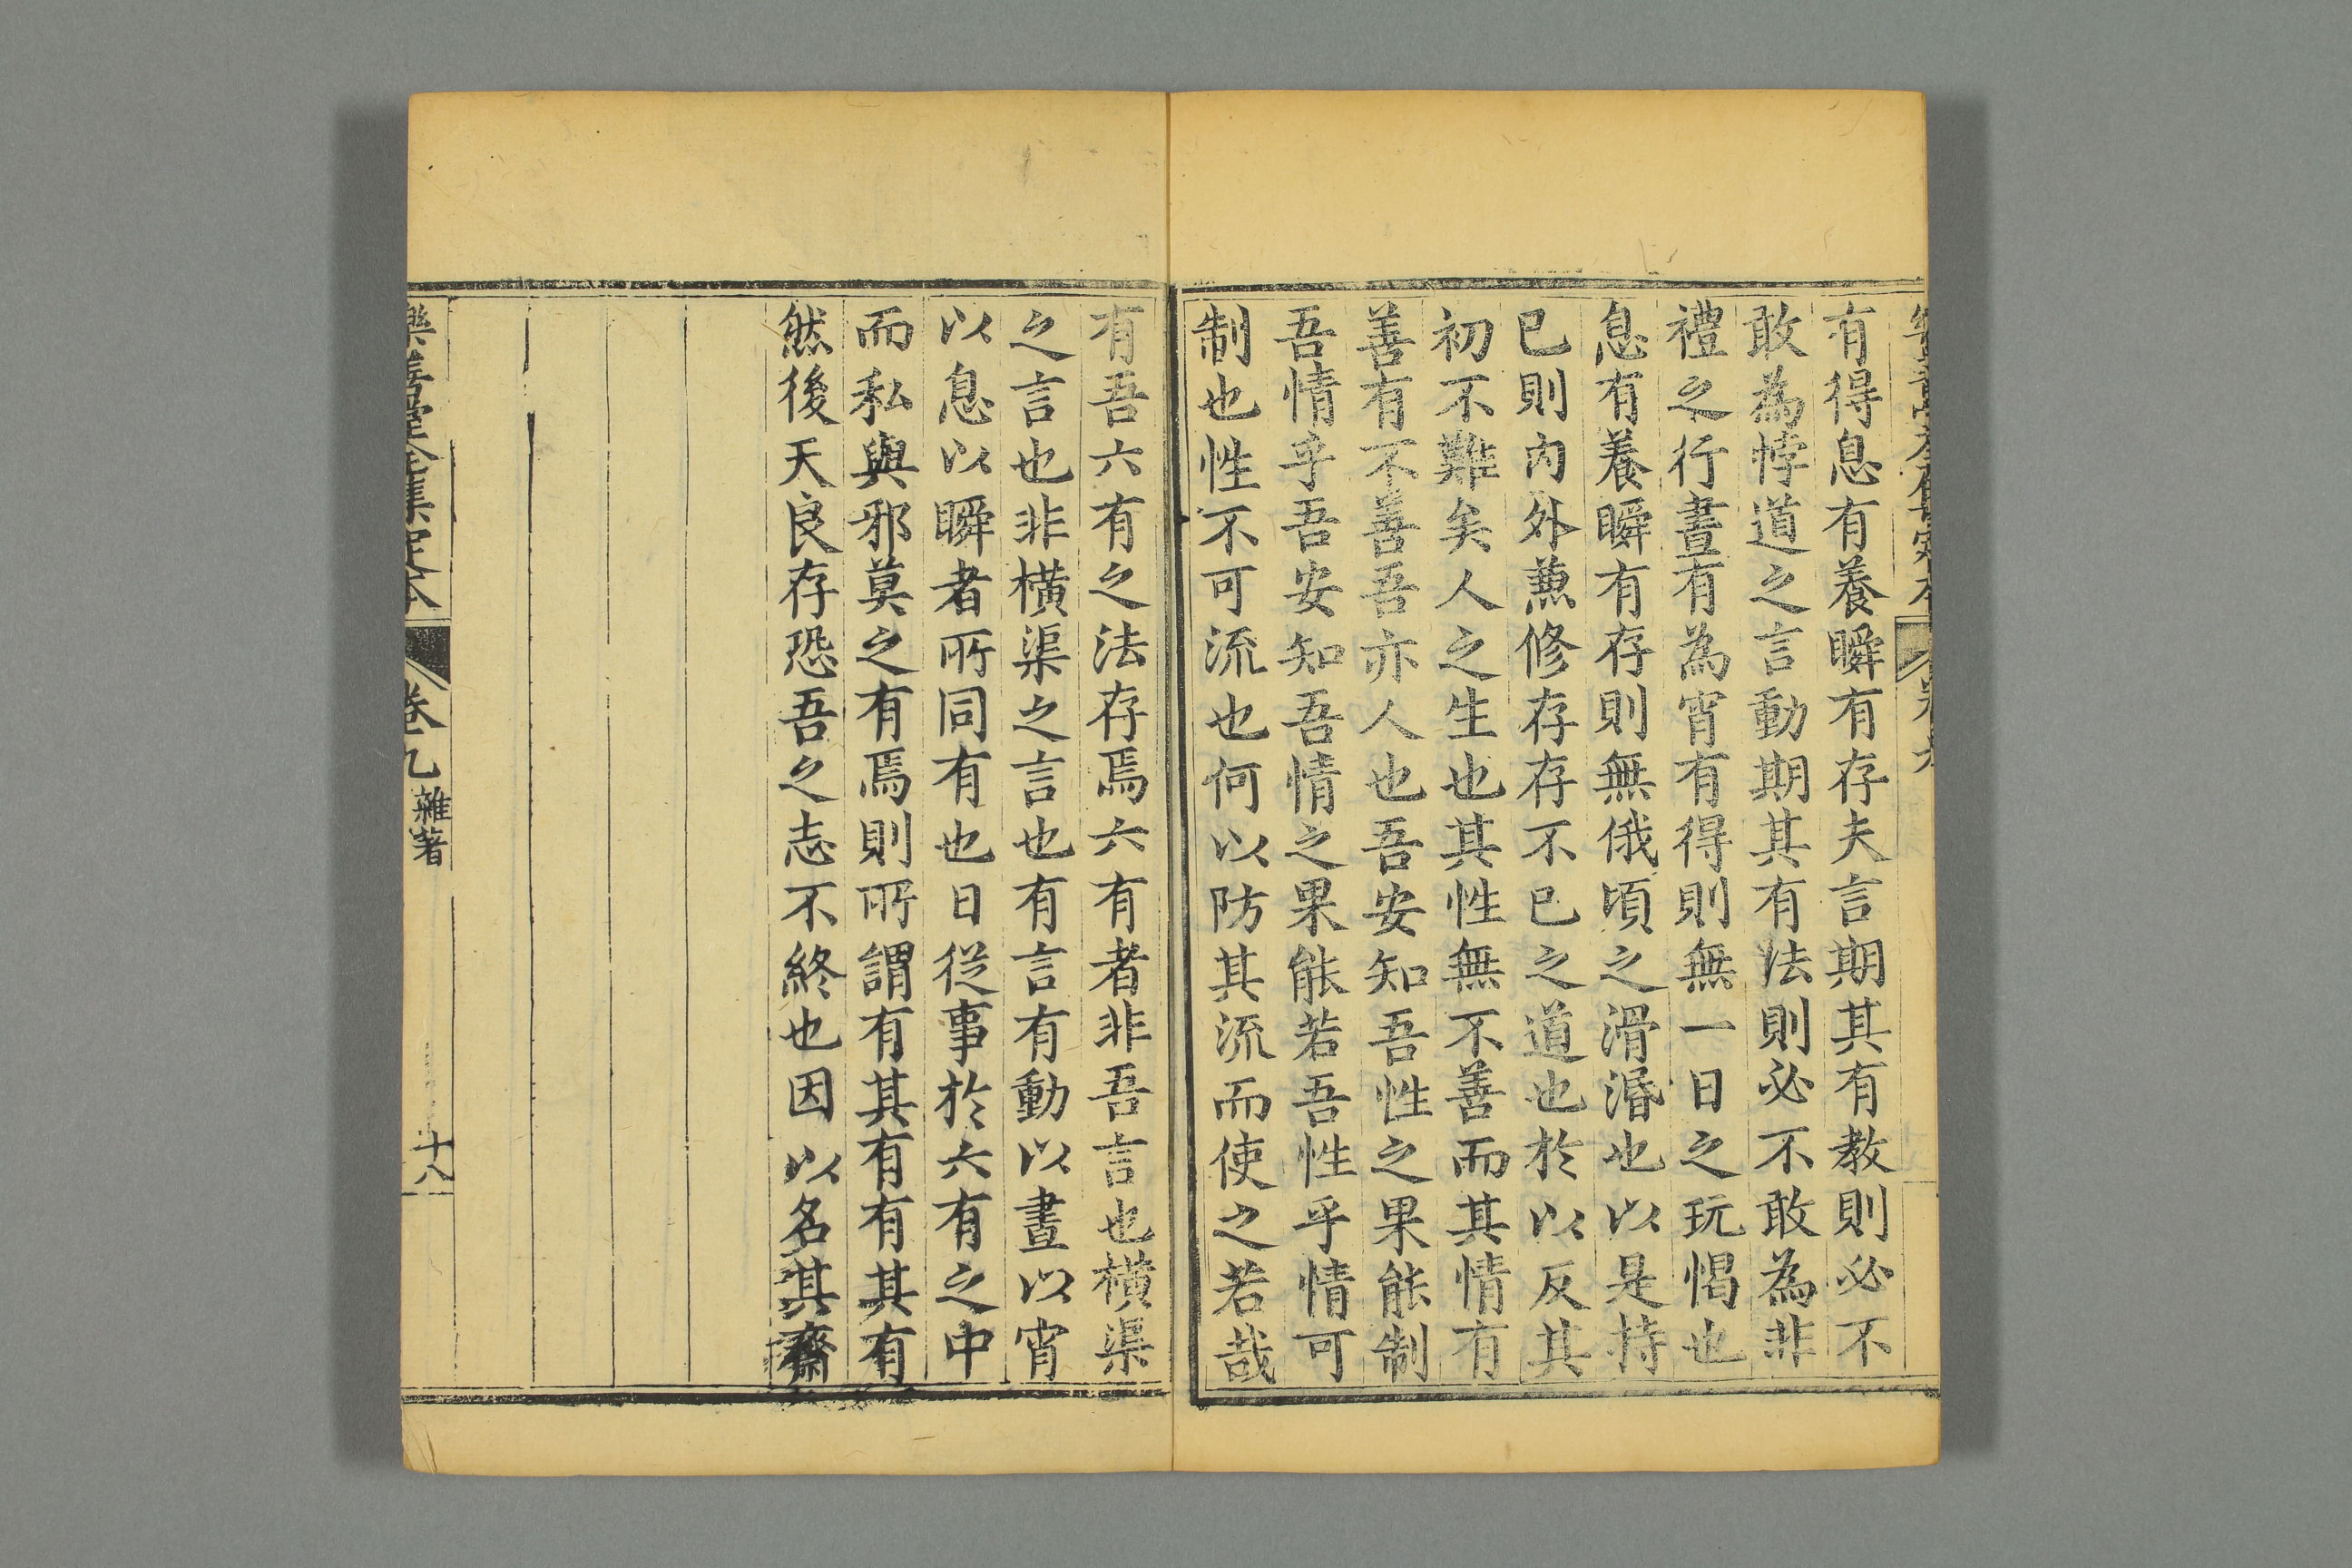 有得息有養瞬有存夫言期其有教則必不
敢為悖道之言動期其有法則必不敢為非
禮之行晝有為宵有得則無一日之玩愒也
息有養瞬有存則無俄頃之滑湣也以是持
已則內外兼修存存不已之道也於以反其
初不難矣人之生也其性無不善而其情有
善有不善吾亦人也吾安知吾性之果能制
吾情乎吾安知吾情之果能若吾性乎情可
制也性不可流也何以防其流而使之若哉
有吾六有之法存焉六有者非吾言也橫渠
之言也非橫渠之言也有言有動以晝以宵
以息以瞬者所同有也日從事於六有之中
而私與邪莫之有焉則所謂有其有有其有
然後天良存恐吾之志不終也因以名其齋
樂善堂全集定本
卷九
雜著
十八